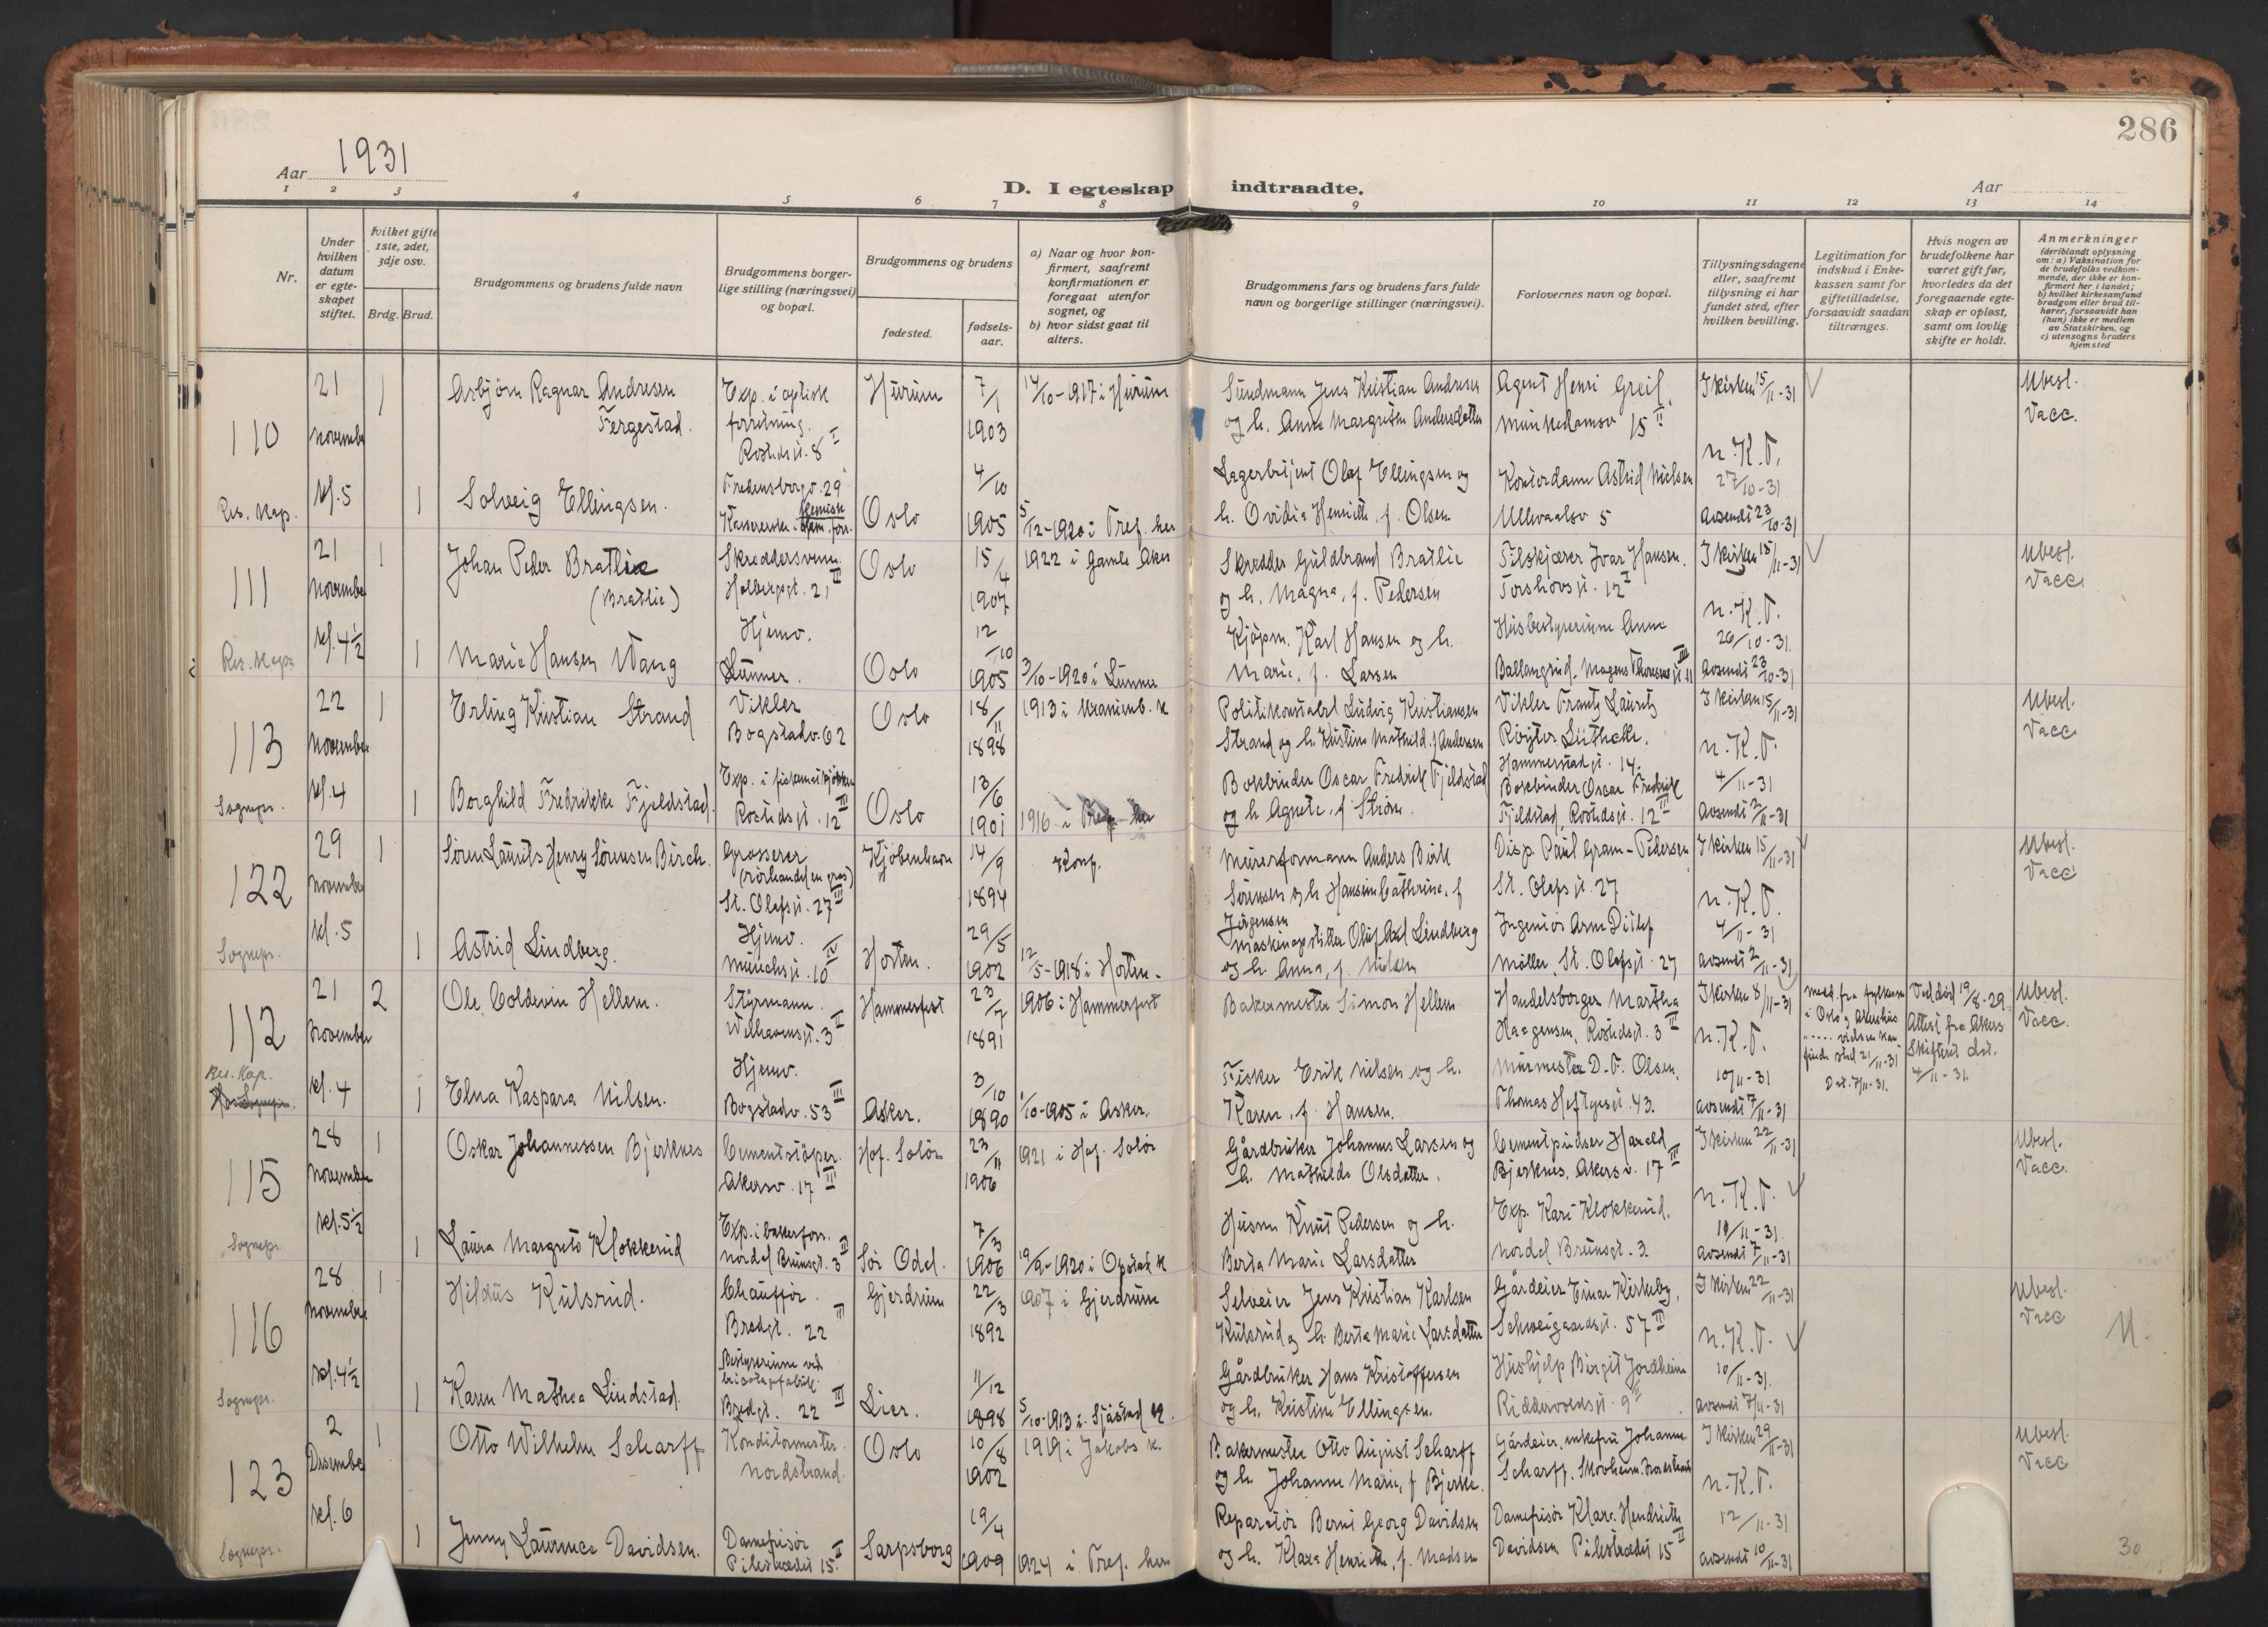 286
Aar 1931
D. I egteskap indtraadte.
Aar
1 2 3 4 5 6 7 8 9 10 11 12 13 14
Nr.
Under hvilken datum er egteskapet stiftet.
Hvilket gifte 1ste, 2det, 3dje osv.
Brdg. Brud.
Brudgommens og brudens fulde navn
Brudgommens borgerlige stilling (næringsvei) og bopæl.
Brudgommens og brudens
fødested.
fødselsaar.
a) Naar og hvor konfirmert, saafremt konfirmationen er foregaat utenfor sognet, og
b) hvor sidst gaat til alters.
Brudgommens fars og brudens fars fulde navn og borgerlige stillinger (næringsvei).
Forlovernes navn og bopæl.
Tillysningsdagene eller, saafremt tillysning ei har fundet sted, efter hvilken bevilling.
Legitimation for indskud i Enkekassen samt for giftetilladelse, forsaavidt saadan tiltrænges.
Hvis nogen av brudefolkene har været gift før, hvorledes da det foregaaende egteskap er opløst, samt om lovlig skifte er holdt.
Anmerkninger (deriblandt oplysning om: a) Vaksination for de brudefolks vedkommende, der ikke er konfirmert her i landet; b) hvilket kirkesamfund brudgom eller brud tilhører, forsaavidt han (hun) ikke er medlem av Statskirken, og c) utensogns bruders hjemsted
110
21 november kl. 5
Res. Kap.
1 Asbjørn Ragnar Andresen Fergestad.
Exp. i optisk forretning. Rosteds gt. 8 I
Hurum
7/1 1903
14/10-1917 i Hurum
Sundmann Jens Kristian Andresen og h. Anne Margrethe Andersdatter
Agent Henri Greif, Munkedamsv 15 II
I kirken 15/11-31
n. K. T.
27/10-31
avsendt 23/10-31
Ubesl. Vacc.
1 Solveig Ellingsen.
Fredensborgv. 29
Oslo
4/10 1905
5/12-1920 i Tref. her
Lagerbetjent Olaf Ellingsen og h. Ovidia Henriette, f. Olsen
Kontordame Astrid Nielsen Ullevaalsv 5
111
21 november kl. 4½
Res. Kap.
1 Johan Peder Bratlie (Bratlie)
Skreddersvenn. Holbergsgt. 21 III
Oslo
15/4 1907
1922 i Gamle Aker
Skredder Guldbrand Bratlie og h. Magna, f. Pedersen
Filskjærer Ivar Hansen. Torshovs gt. 12 I
I kirken 15/11-31
n. K. T.
26/10-31.
avsendt 23/10-31
Ubesl. Vacc.
1 Marie Hansen Wang
Hjemv. Lunner.
Oslo
12/10 1905
3/10-1920 i Lunner
Kjøpm. Karl Hansen og h. Marie, f. Larsen
Husbestyrerinne Anne Ballangrud. Magnus Thoresens gt 11 III
113
22 november kl. 4
Sognepr.
1 Erling Kristian Strand
Vikler Bogstadv. 62
Oslo
18/11 1898
1913 i Uranienb. k
Politikonstabel Ludvig Kristiansen Strand og h. Kristine Mathild. f Andersen
Vikler Frantz Lauritz Røyter Luthcke. Hammerstads gt. 14.
I kirken 15/11-31
n. K. T.
4/11-31
avsendt 2/11-31
Ubesl. Vacc
1 Borghild Fredrikke Fjeldstad.
Rosteds gt. 12 III
Oslo
13/6 1901
1916 i Tref. her
Bokbinder Oscar Fredrik Fjeldstad og h Agnete, f Strøm.
Bokbinder Oscar Fredrik Fjeldstad, Rosteds gt. 12 III
122
29 november kl. 5
Sognepr.
1 Søren Laurits Henry Sørensen Birch.
Grosserer (rørhandel en gros) St. Olafs gt. 27 III
Kjøbenhavn
14/9 1894
Konf.
Murerformann Anders Birk Sørensen og h Hansine Cathrine, f Jørgensen
Disp. Paul Gram-Pedersen St. Olafs gt. 27
I kirken 15/11-31
n. K. T.
4/11-31
avsendt 2/11-31
Ubesl. Vacc
1 Astrid Lindberg.
Hjemv. Munchs gt. 10 IV
Horten.
29/5 1902
12/5-1918 i Horten.
Maskinopstiller Oluf Axel Lindberg og h. Anna, f. Nielsen
Ingeniør Arne Ditlef Møller, St. Olafs gt. 27
112
21 November kl. 4
Res. Kap.
2 Ole Coldevin Hellem.
Styrmann. Welhavens gt. 3 II
Hammerfest
23/7 1891
1906 i Hammerfest
Bakermester Simon Hellem
Handelsborger Martha Haagensen, Rosteds gt. 3 III
I kirken 8/11-31
n. K. T.
10/11-31
avsendt 7/11-31
Medd. fra fylkesm. i Oslo og Akershus vielsen kan finde sted 21/11-31 Dat. 7/11-31.
Ved død 19/8-29 Attest fra Akers Skifterett dat. 4/11-31.
Ubesl. Vacc.
1 Elna Kaspara Nilsen.
Hjemv. Bogstadv. 53 III
Asker.
3/10 1890
1/10-1905 i Asker.
Fisker Erik Nilsen og h. Karen, f. Hansen.
Murmester D. F. Olsen, Thomas Heftyes gt. 43.
115
28 november kl. 5½
Sognepr.
1 Oskar Johannessen Bjerknes
Cementstøper. Akersv. 17 III
Hof. Solør
23/11 1906
1921 i Hof. Solør
Gårdbruker Johannes Larsen og h. Mathilde Olsdatter.
Cementpudser Harald Bjerknes, Akersv. 17 III
I kirken 22/11-31
n. K. T.
10/11-31.
avsendt 7/11-31
Ubesl. Vacc.
1 Laura Margrete Klokkerud
Exp. i bakerforr. Nordal Brunsgt. 3 III
Sør Odal.
7/3 1906
19/9-1920 i Opstad k
Husm Knut Pedersen og h. Berta Marie Larsdatter
Exp. Kari Klokkerud. Nordal Brunsgt. 3.
116
28 November kl. 4½
Sognepr.
1 Hildus Kulsrud.
Chauffør. Bredgt. 22 III
Gjerdrum
22/3 1892
1907 i Gjerdrum
Selveier Jens Kristian Karlsen Kulsrud og h. Berta Marie Larsdatter
Gårdeier Einar Kirkeby, Schweigaards gt. 57 II
I kirken 22/11-31
n. K. T.
10/11-31.
avsendt 7/11-31
Ubesl. Vacc
U.
1 Karen Mathea Lindstad.
Bestyrerinne ved tricotagefabrik. Bredgt. 22 III
Lier.
11/12 1898
5/10-1913 i Sjåstad k.
Gårdbruker Hans Kristoffersen og h. Kristine Ellingsen.
Hushjelp Birgit Jordheim Riddervolds gt. 9 II
123
2 Desember kl. 6
Sognepr.
1 Otto Wilhelm Scharff
Konditormester. Nordstrand.
Oslo
10/8 1902
1919 i Jakobs k.
Bakermester Otto August Scharff og h. Johanne Marie, f Bjerke.
Gårdeier, enkefru Johanne Scharff. Skovheim. Nordstrand
I kirken 29/11-31
n. K. T.
12/11-31
avsendt 10/11-31
Ubesl. Vacc
1 Jenny Laurence Davidsen.
Damefrisør Pilestredet 15 II
Sarpsborg
19/4 1909
1924 i Tref. her
Reparatør Bernt Georg Davidsen og h. Klara Henriette, f. Madsen
Damefrisør Klara Hendriette Davidsen Pilestredet 15 II
30